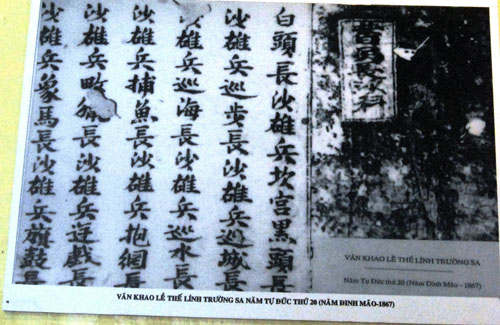 白頭長沙雄兵坎宮黑頭長
沙雄兵巡步長沙雄兵巡城長
沙雄兵巡海長沙雄兵巡水長
沙雄兵捕魚長沙雄兵抱網長
沙雄兵長沙雄兵戲長
沙雄兵象馬長沙雄兵旗鼓長
VĂN KHAO LỄ THẾ LÍNH TRƯỜNG SA
Năm Tự Đức thứ 20 (Năm Đinh Mão - 1867)
VĂN KHAO LỄ THẾ LÍNH TRƯỜNG SA NĂM TỰ ĐỨC THỨ 20 (NĂM ĐINH MÃO-1867)